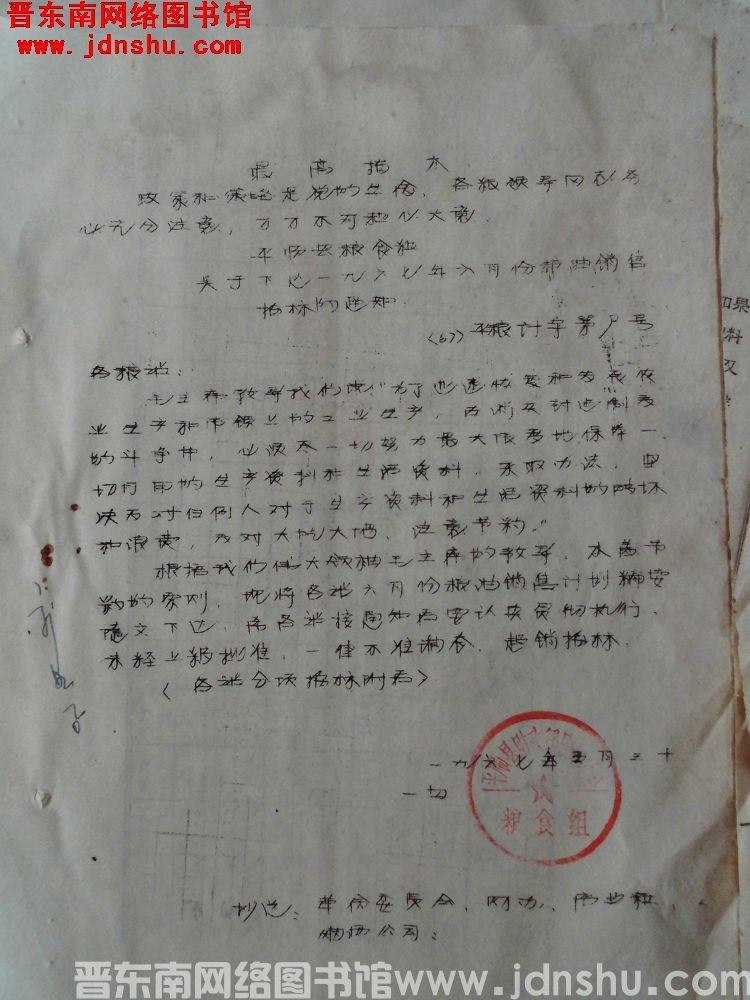 晋东南网络图书馆
www.jdnshu.com
最高指示
政策和策略是党的生命，各级领导同志务
必充分注意，万万不可粗心大意．
平师县粮食组
关于下达一九六七年六月份粮油销售
指标的通知．
(67)平粮计字第 号
各粮站：
毛主席教导我们说“为了迅速恢复和发展农
业生产和市镇上的工业生产，在消灭封建制度
的斗争中，必须尽一切努力最大限度地保存一
切可用的生产资料和生活资料，采取办法，坚
决反对任何人对于生产资料和生活资料的破坏
和浪费，反对大吃大喝，注意节约．”
根据我们伟大领袖毛主席的教导，本着节
约的原则，现将各站六月份粮油销售计划
随文下达，希各站接通知后要认真贯彻执行，
未经上级批准，一律不准调剂，超销指标．
（各站分项指标附后）
一九六七年五月三十
一切
粮食组
抄送：革供委员会、财办、商业组、
公司：
如果
料
双
晋东南网络图书馆www.jdnshu.com